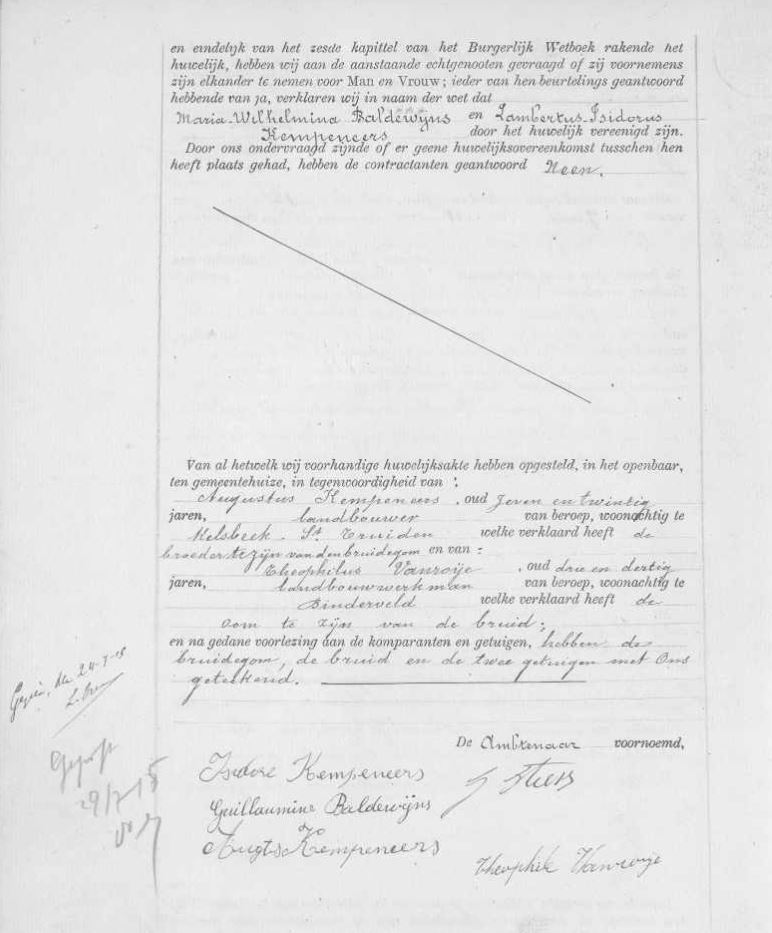 en eindelijk van het zesde kapittel van het Burgerlijk Wetboek rakende het
huwelijk, hebben wij aan de aanstaande echtgenooten gevraagd of zij voornemens
zijn elkander te nemen voor Man en Vrouw; ieder van hen beurtelings geantwoord
hebbende van ja, verklaren wij in naam der wet dat
Maria-Wilhelmina Baldewijns en Lambertus-Isidorus
Kempeneers door het huwelijk vereenigd zijn.
Door ons ondervraagd zijnde of er geene huwelijksovereenkomst tusschen hen
heeft plaats gehad, hebben de contractanten geantwoord Neen.
Van al hetwelk wij voorhandige huwelijksakte hebben opgesteld, in het openbaar,
ten gemeentehuize, in tegenwoordigheid van :
Augustus Kempeneers, oud zeven en twintig
jaren, landbouwer van beroep, woonachtig te
Melsbeek - St Truiden welke verklaard heeft de
broeder te zijn van den bruidegom en van :
Theophilus Vanroije, oud drie en dertig
jaren, landbouwwerkman van beroep, woonachtig te
Binderveld welke verklaard heeft de
oom te zijn van de bruid;
en na gedane voorlezing aan de komparanten en getuigen, hebben de
bruidegom, de bruid en de twee getuigen met Ons
geteekend.
De Ambtenaar voornoemd,
Isidore Kempeneers
Guillaumine Baldewijns
Augts Kempeneers
Theophile Vanroije
Gezien, den 24-7-18
29/7 18